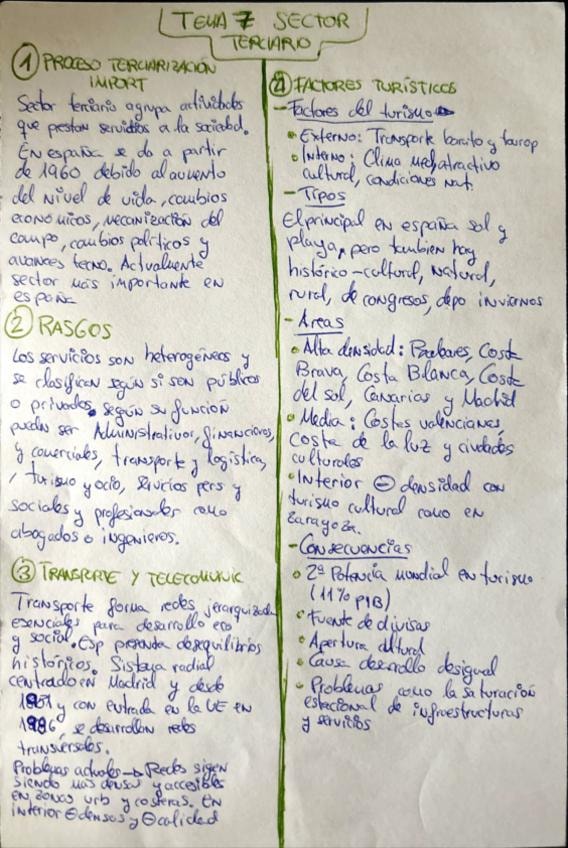 TEMA 7 SECTOR
TERCIARIO
① PROCESO TERCIARIZACIÓN
IMPORT
Sector terciario agrupa actividades
que prestan servicios a la sociedad.
En españa se da a partir
de 1960 debido al aumento
del nivel de vida, cambios
económicos, mecanización del
campo, cambios políticos y
avances tecno. Actualmente
sector más importante en
españa
② RASGOS
Los servicios son heterogéneos y
se clasifican según si son públicos
o privados. según su función
pueden ser Administrativos, financieros,
y comerciales, transporte y logística,
, turismo y ocio, servicios pers y
sociales y profesionales como
abogados o ingenieros.
③ TRANSPORTE Y TELECOMUNIC
Transporte forma redes jerarquizada
esenciales para desarrollo eco
y social. Esp presenta desequilibrios
históricos. Sistema radial
centrado en Madrid y desde
y con entrada en la UE en
1986 se desarrollan redes
transversales.
Problemas actuales → Redes siguen
siendo más densas y accesibles
en zonas urb y costeras. En
interior ⊖ densos y ⊖ calidad
④ FACTORES TURÍSTICOS
- Factores del turismo
• Externo: Transporte barato y tourop
• Interno: Clima med, atractivo
cultural, condiciones nat.
- Tipos
El principal en españa sol y
playa, pero tambien hay
histórico-cultural, natural,
rural, de congresos, depo inviernos
- Áreas
• Alta densidad: Baleares, Costa
Brava, Costa Blanca, Costa
del sol, Canarias y Madrid
• Media: Costas valencianas,
costa de la luz y ciudades
culturales
• Interior ⊖ densidad con
turismo cultural como en
Zaragoza.
- Consecuencias
• 2ª Potencia mundial en turismo
(11% PIB)
• Fuente de divisas
• Apertura cultural
• Causa desarrollo desigual
• Problemas como la saturación
estacional de infraestructuras
y servicios